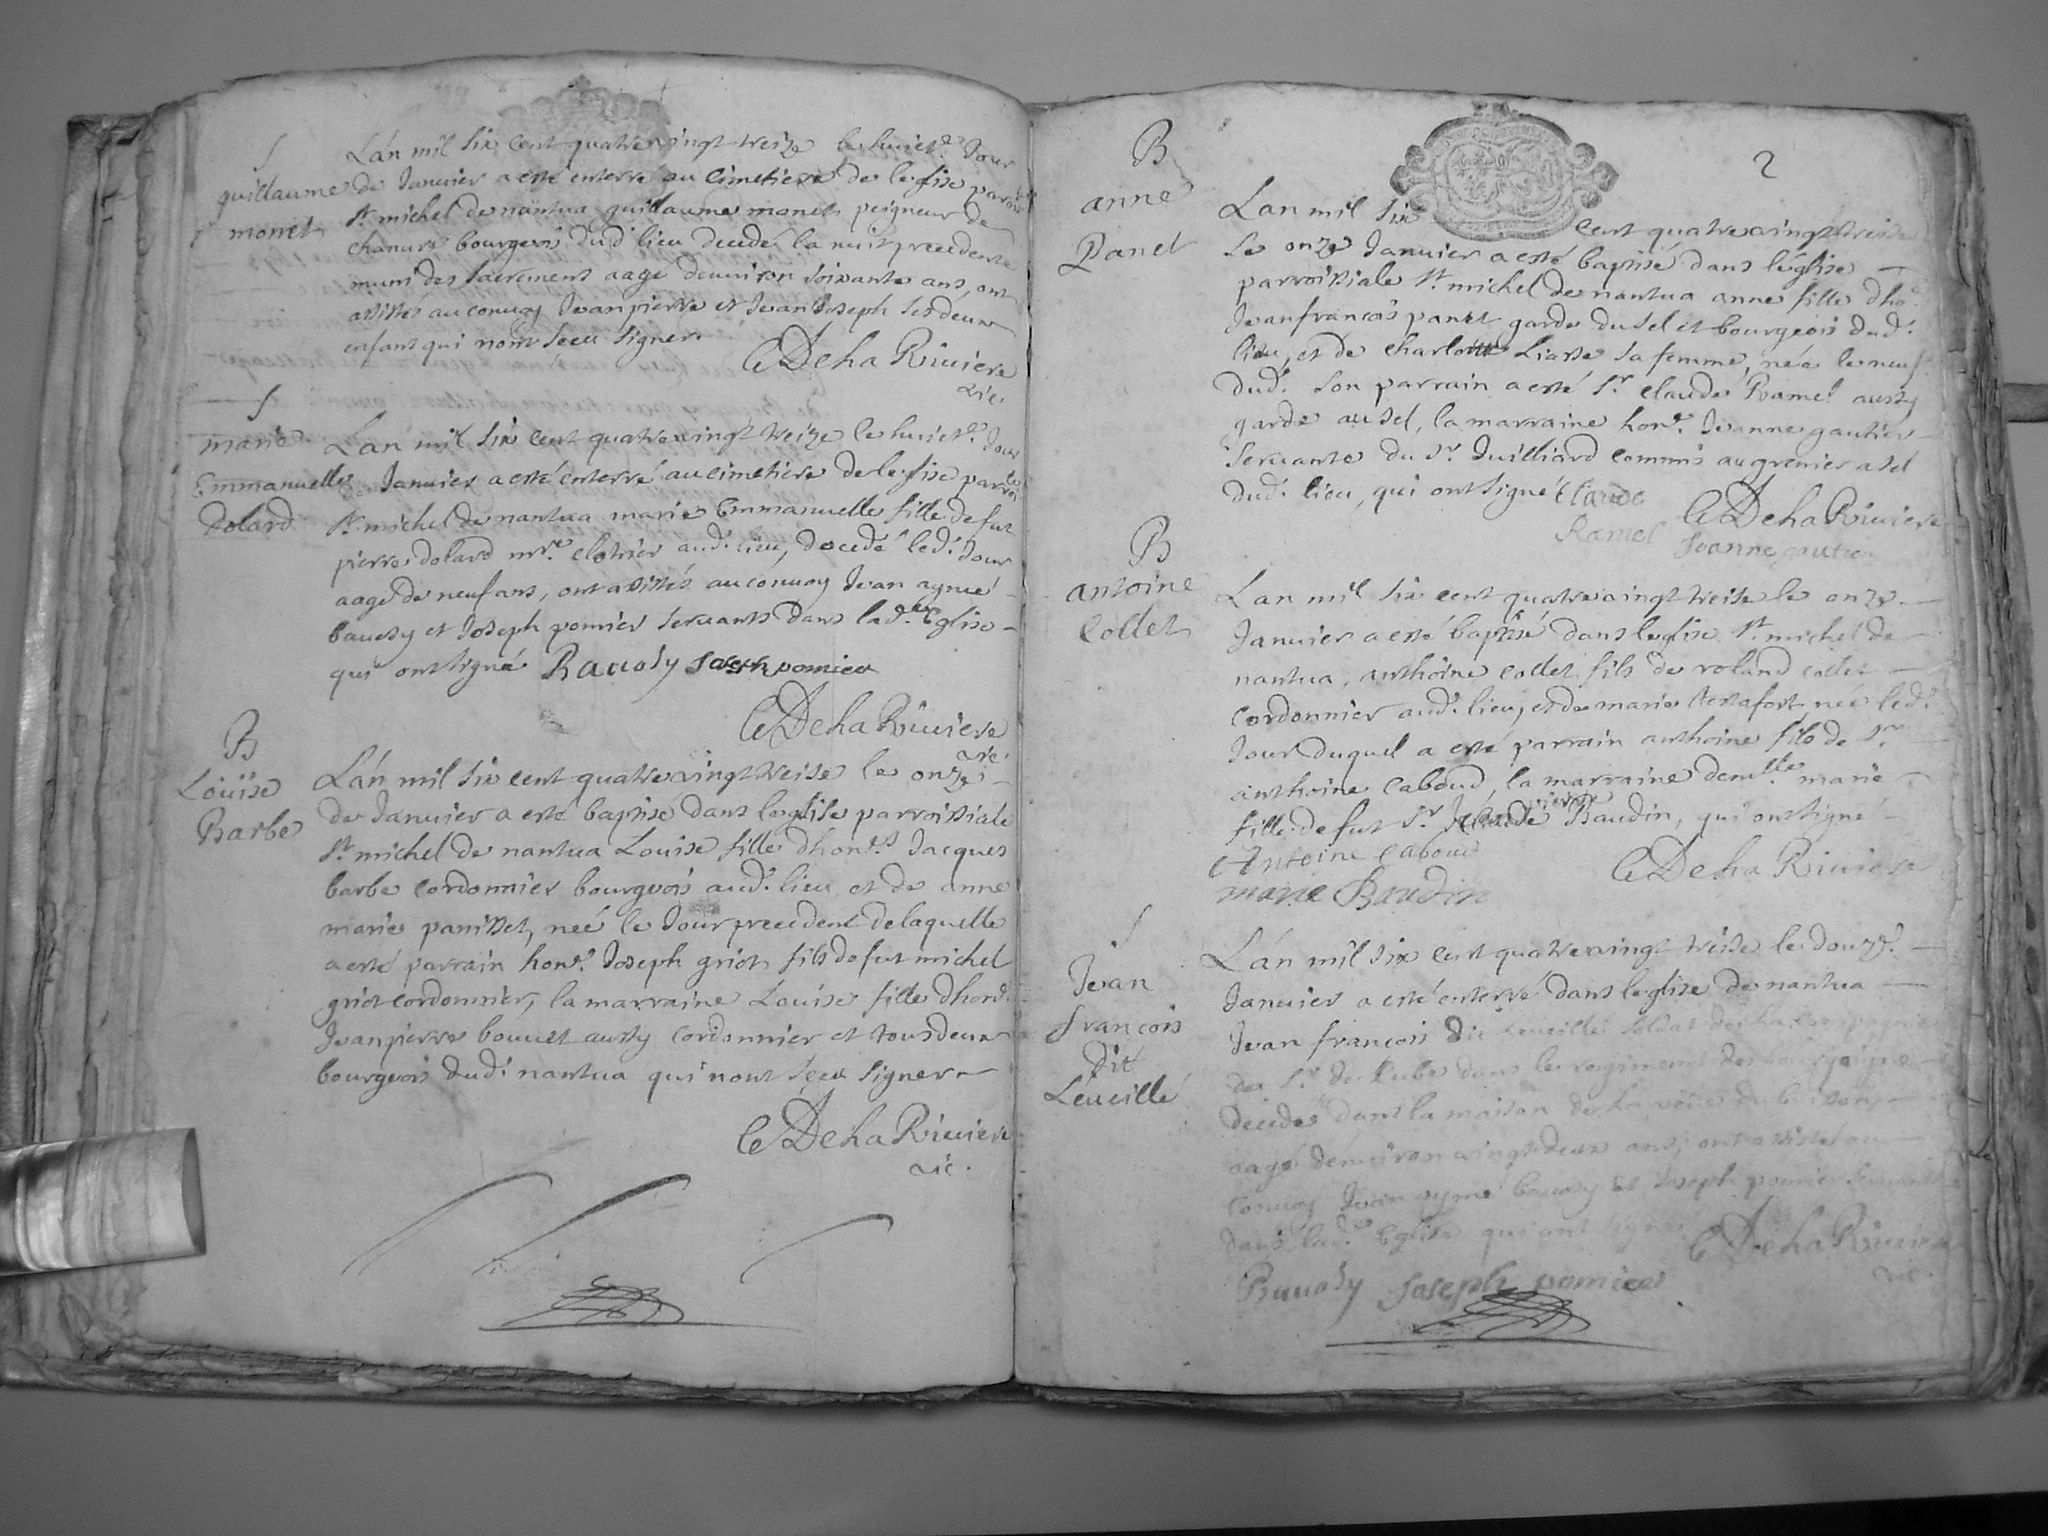 S
guillaume
monet
Lán mil six cent quatre vingt treize le huict.e Jour
de Januier a esté enterré au cimetiere de leglise parro.lle
St. michel de nantua guillaume monet peigneur de
chanure bourgeois dud. lieu decedé la nuit precedente
muni des sacrements aagé denuiron soixante ans, ont
assistés au conuoy Jean pierre et Jean Joseph ses deux
enfant qui nont sceu signer
CDehaRiuiere
vic.
S
marie
Emmanuelle
Dolard
Lán mil six cent quatre vingt treize le huict.e Jour
Januier a esté enterré au cimetiere de leglise parro.lle
St. michel de nantua marie Emmanuelle fille de fut
pierre dolard mre. clotrier aud. lieu, decedé led. Jour
aagé de neuf ans, ont assistés au conuoy Jean aymé
bauosy et Joseph pomier seruants dans lad.e Eglise
qui ont signé Bauosy Joseph pomier
CDehaRiuiere
vic.
B
Loüise
Barbe
Lán mil six cent quatre vingt treise le onze
de Januier a esté baptisé dans leglise parroissiale
St. michel de nantua Louise fille dhon.s Jacques
barbe cordonnier bourgeois aud. lieu et de anne
marie panisset, neé le Jour precedent de laquelle
a esté parrain hon.e Joseph griot fils de fut michel
griot cordonnier, la marraine Louise fille dhon.
Jean pierre bouuet aussy cordonnier et tous deux
bourgeois dud. nantua qui nont sceu signer
CDehaRiuiere
vic.
2
B
anne
Panet
Lan mil six cent quatre vingt treise
Le onze Januier a esté baptisé dans léglise
parroissiale St. michel de nantua anne fille dho.
Jean francois panet garde du sel et bourgeois dud.
lieu, et de charlotte Liasse sa femme, née le neuf
dud. son parrain a esté Sr. claude Ramel aussy
garde au sel, la marraine hon.e Jeanne gautier
seruante du Sr. Juilliard commis au grenier a sel
dud. lieu, qui ont signé Claude
Ramel CDehaRiuiere
Jeanne gautier
B
antoine
Collet
Lan mil six cent quatre vingt treise le onze
Januier a esté baptisé dans leglise St. michel de
nantua, anthoine collet fils de roland collet
cordonnier aud. lieu, et de marie testafort née led.
Jour duquel a esté parrain anthoine fils de Sr.
anthoine caboud, la marraine dem.lle marie
fille de fut Sr. pierre Baudin, qui ont signé
Antoine caboud
marie Baudin CDehaRiuiere
S
Jean
francois
dit
Léueillé
Lán mil six cent quatre vingt treise le douz.e
Januier a esté enterré dans leglise de nantua
Jean francois dit Leueillé soldat de la compagnie
de Sr. de Lube dans le regiment de
decedé dans la maison de la
aagé denuiron vingt deux ans, ont assisté au
conuoy Jean aymé bauosy et Joseph pomier seruants
dans lad.e Eglise qui ont signé
CDehaRiuiere
vic.
Bauosy Joseph pomier